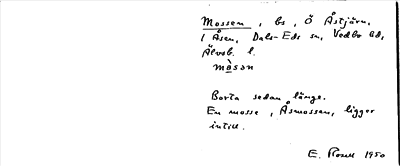 Mossen, bs, Ö Åstjärn,
i Åsen, Dals-Eds sn, Vedbo hd,
Älvsb. l.
mɑ̀sən
Borta sedan länge.
En mosse, Åsmossen, ligger
intill.
E. Rosell 1950